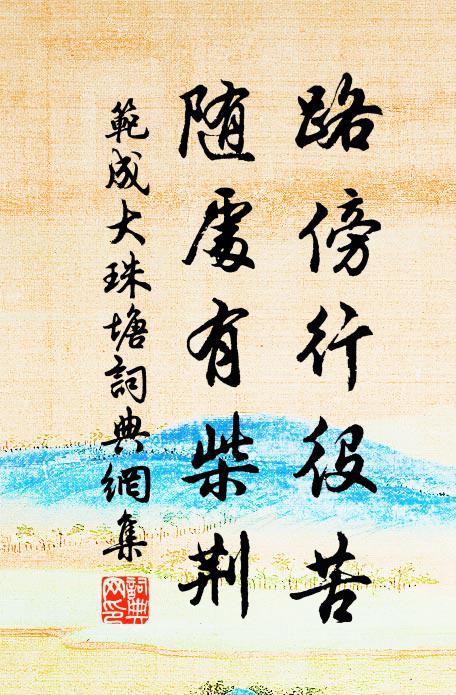 路傍行役苦
随處有柴荆
範成大珠塘詞典網集
詞典
网印